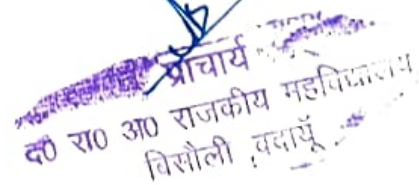 प्राचार्य
द0 रा0 अ0 राजकीय महाविद्यालय
विसौली ,वदायूँ